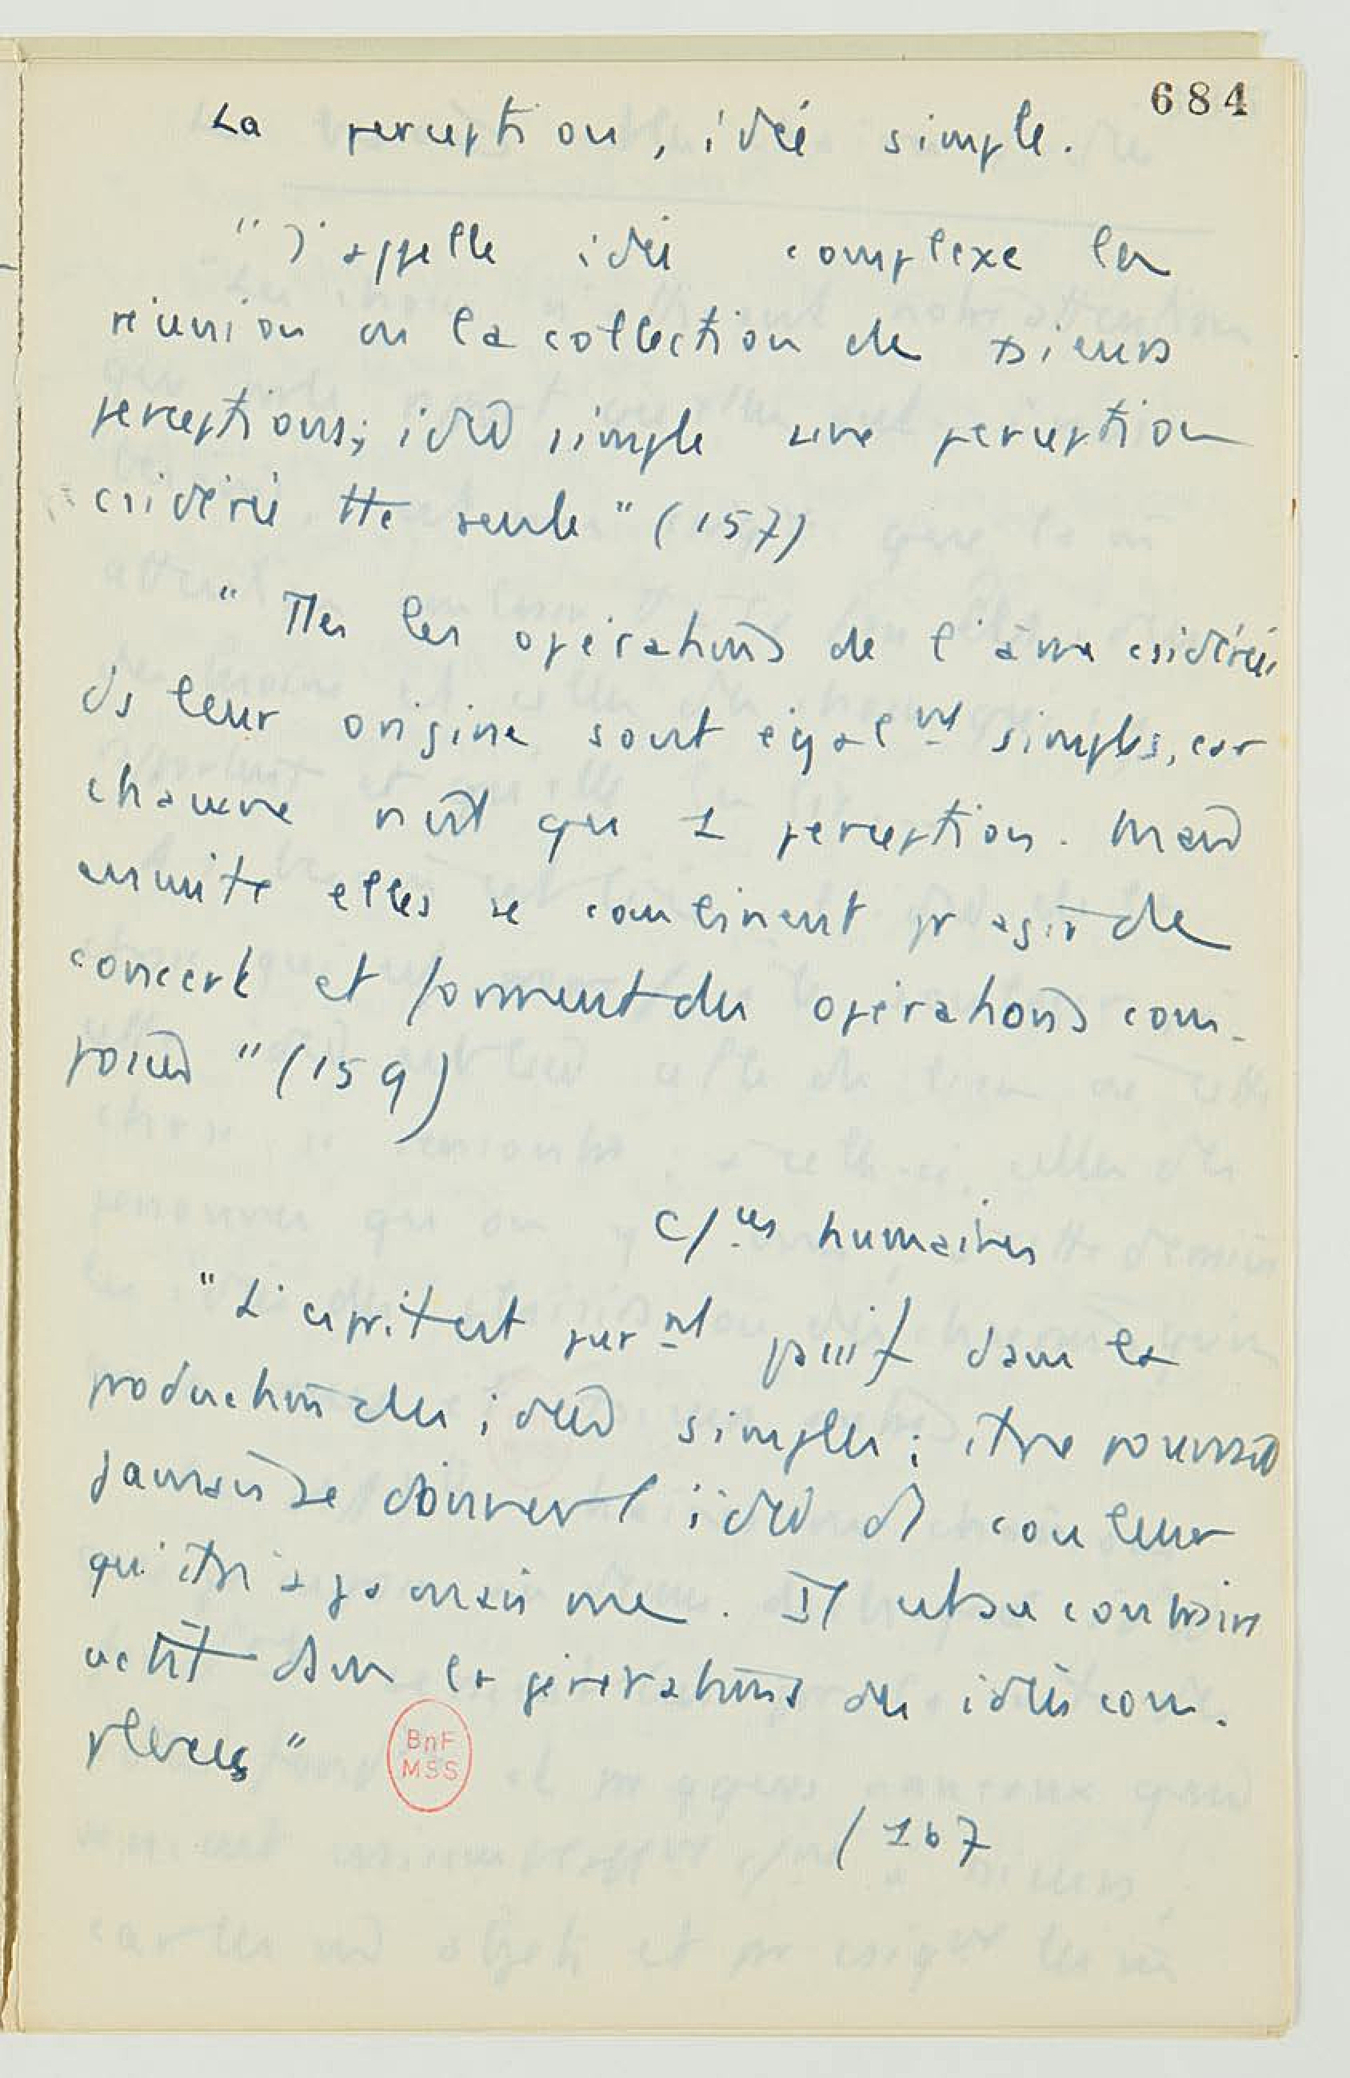 684
La perception, idée simple.
"J'appelle idée complexe la
réunion ou la collection de psieurs
perceptions; idée simple une perception
csidérée tte seule" (157)
"Ttes les opérations de l'âme csidérées
ds leur origine sont égalnt simples, car
chacune n'est que 1 perception. Mais
ensuite elles se combinent pr agir de
concert et forment des opérations com-
posées" (159)
c/ces humaines
"L'esprit est purnt passif dans la
production des idées simples;
jamais se donner l'idée d' couleur
qu'il n'a jamais vue. Il est au contraire
actif dans la génération des idées com-
plexes"
BnF
MSS
(167